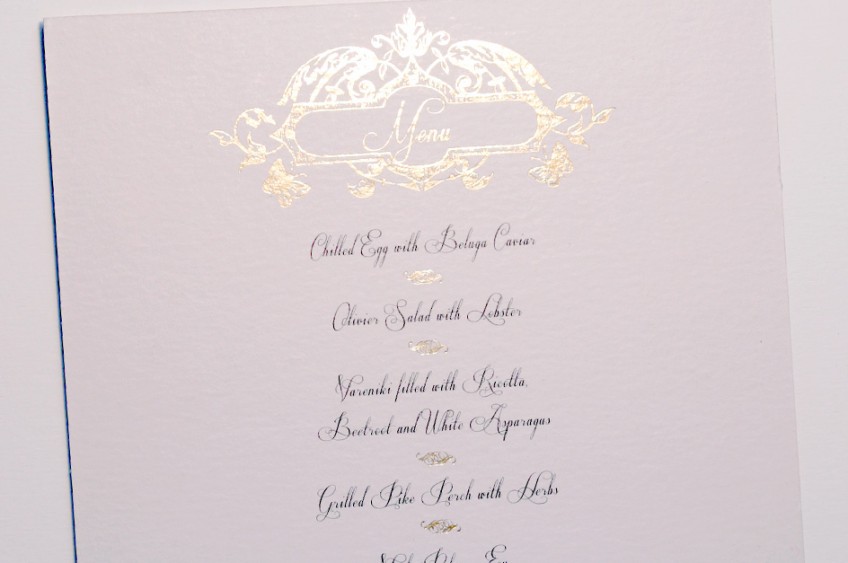 Menu
Chilled Egg with Beluga Caviar
Olivier Salad with Lobster
Vareniki filled with Ricotta,
Beetroot and White Asparagus
Grilled Pike Perch with Herbs